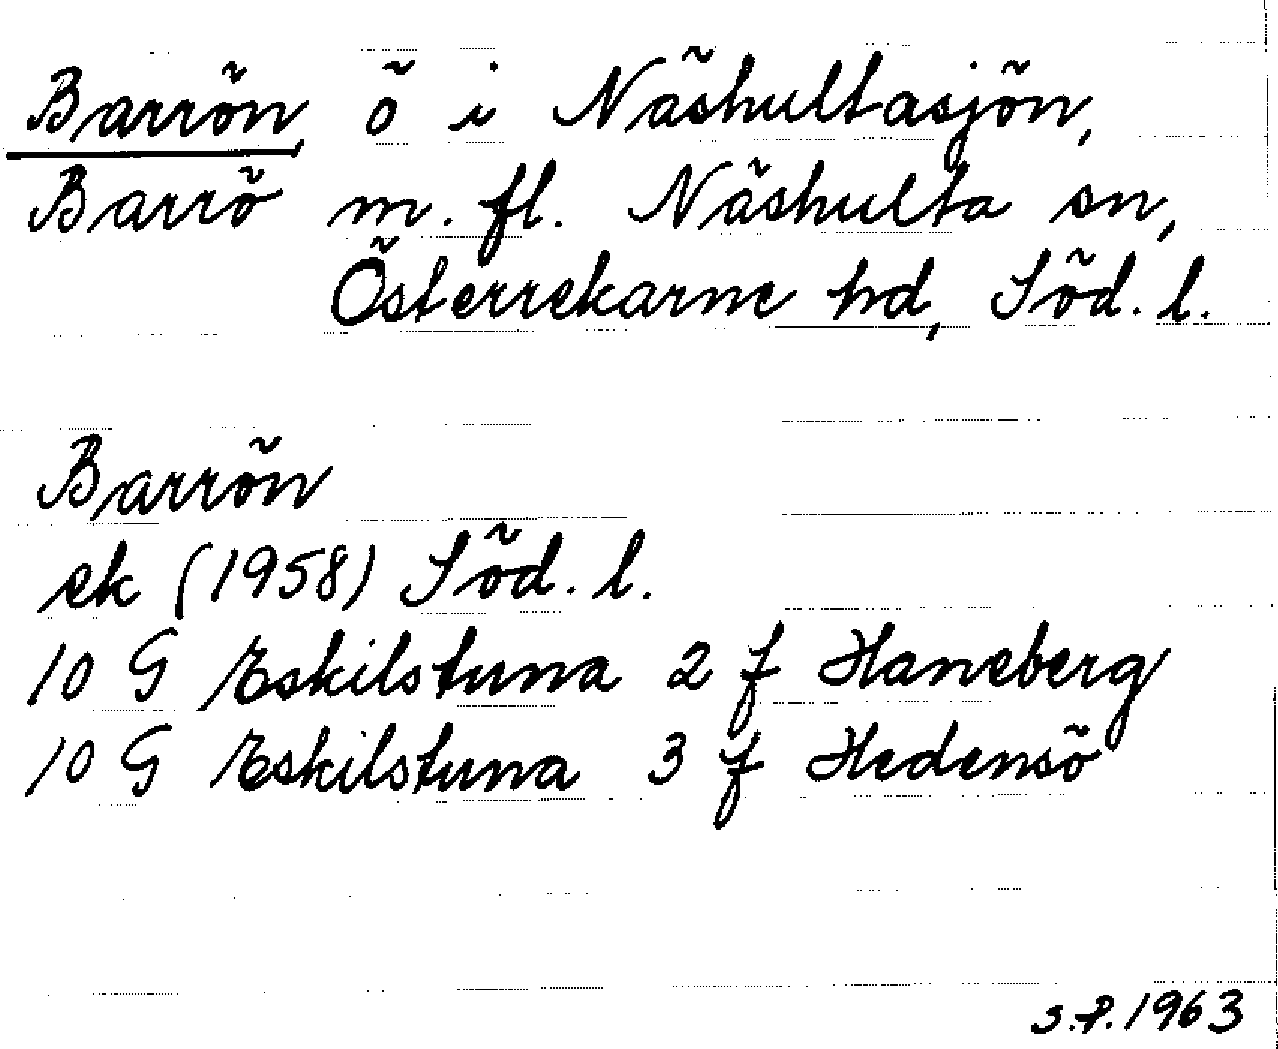 Barrön, ö i Näshultasjön,
Barrö m. fl. Näshulta sn,
Österrekarne hd, Söd. l.
Barrön
ek (1958) Söd. l.
10 G Eskilstuna 2 f Haneberg
10 G Eskilstuna 3 f Hedensö
S.P. 1963